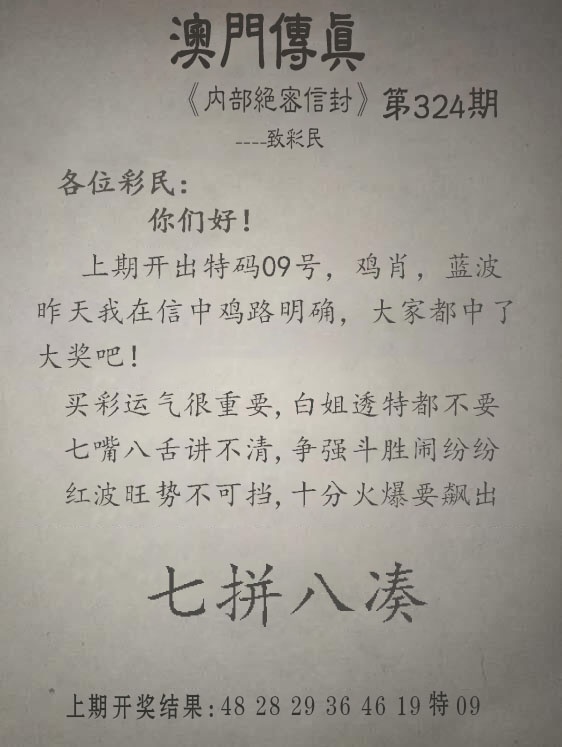 澳門傳眞
《内部絕密信封》第324期
----致彩民
各位彩民：
你们好！
上期开出特码09号，鸡肖，蓝波
昨天我在信中鸡路明确，大家都中了
大奖吧！
买彩运气很重要,白姐透特都不要
七嘴八舌讲不清,争强斗胜闹纷纷
红波旺势不可挡,十分火爆要飙出
七拼八凑
上期开奖结果:48 28 29 36 46 19 特 09